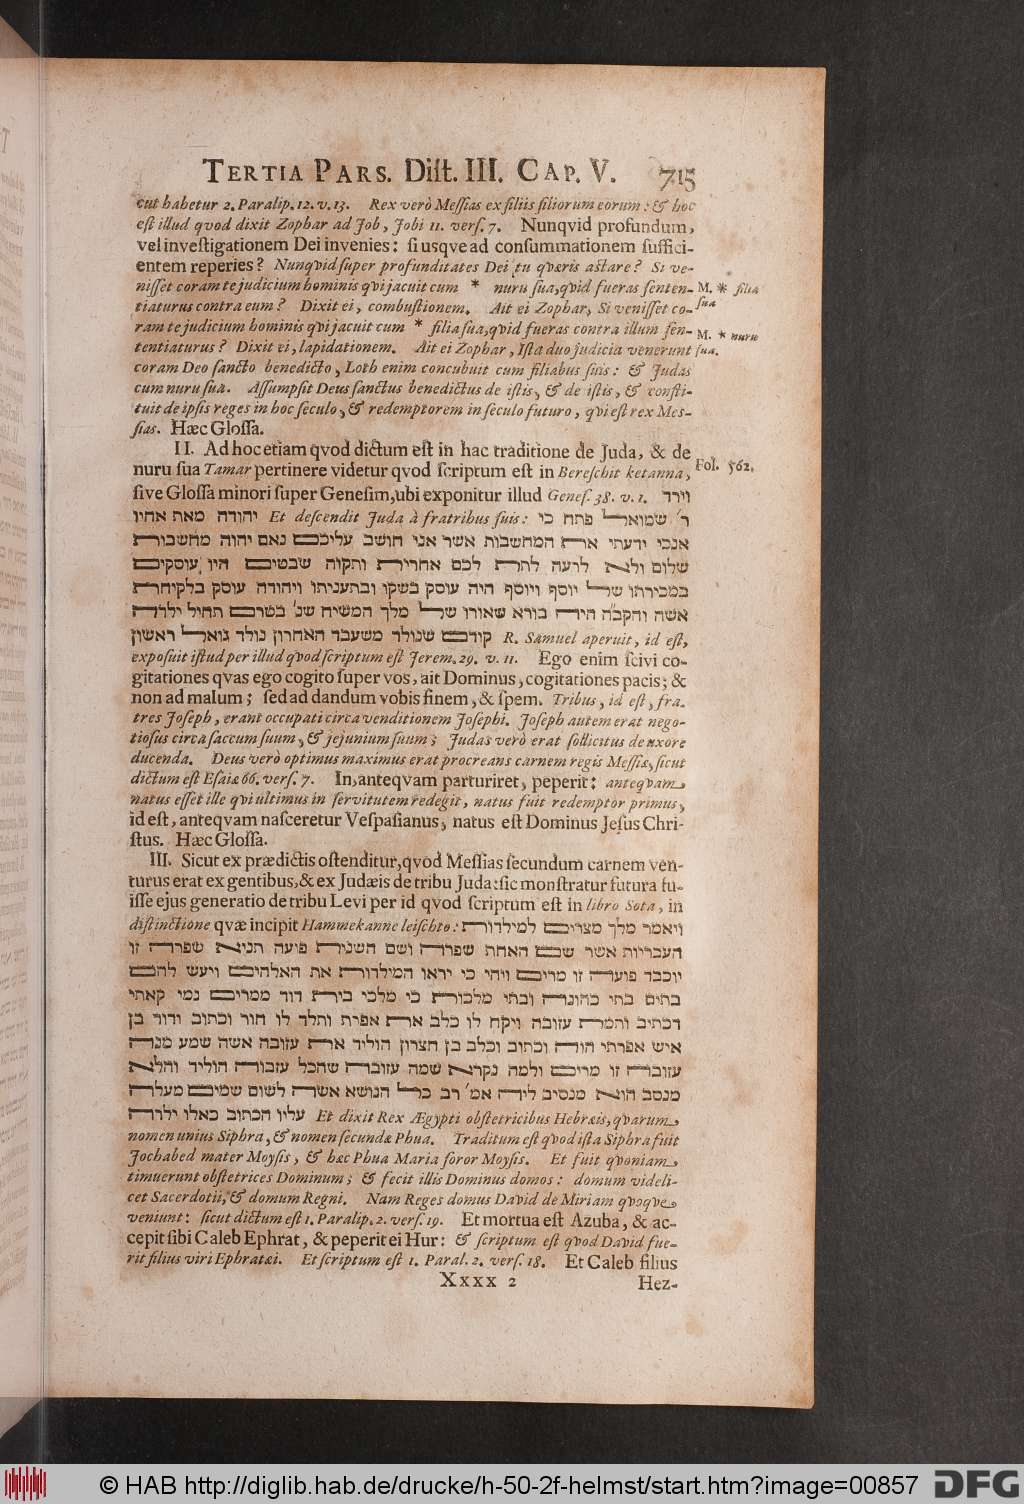 TERTIA PARS. Diſt. III. CAP. V. 715
cut habetur 2. Paralip. 12. v. 13. Rex verò Meſſias ex filiis filiorum eorum: & hoc
eſt illud qvod dixit Zophar ad Job, Jobi 11. verſ. 7. Nunqvid profundum,
vel inveſtigationem Dei invenies: ſi usqve ad conſummationem ſuffici-
entem reperies? Nunqvid ſuper profunditates Dei tu qværis aſtare? Si ve-
niſſet coram te judicium hominis qvi jacuit cum * nuru ſua, qvid fueras ſenten-
tiaturus contra eum? Dixit ei, combuſtionem. Ait ei Zophar, Si veniſſet co-
ram te judicium hominis qvi jacuit cum * filia ſua, qvid fueras contra illum ſen-
tentiaturus? Dixit ei, lapidationem. Ait ei Zophar, Iſta duo judicia venerunt
coram Deo ſancto benedicto, Loth enim concubuit cum filiabus ſuis: & Judas
cum nuru ſua. Aſſumpſit Deus ſanctus benedictus de iſtis, & de iſtis, & conſti-
tuit de ipſis reges in hoc ſeculo, & redemptorem in ſeculo futuro, qvi eſt rex Meſ-
ſias. Hæc Gloſſa.
M. * filia
ſua
M. * nuru
ſua.
II. Ad hoc etiam qvod dictum eſt in hac traditione de Juda, & de
nuru ſua Tamar pertinere videtur qvod ſcriptum eſt in Bereſchit ketanna,
Fol. 562.
ſive Gloſſa minori ſuper Geneſim, ubi exponitur illud Geneſ. 38. v. 1. וירד
יהודה מאת אחיו Et deſcendit Juda à fratribus ſuis: ר׳ שמואל פתח כי
אנכי ידעתי את המחשבות אשר אני חושב עליכם נאם יהוה מחשבות
שלום ולא לרעה לתת לכם אחרית ותקוה שבטים היו עוסקים
במכירתו של יוסף ויוסף היה עוסק בשקו ובתעניתו ויהודה עוסק בלקיחת
אשה והקב״ה היה בורא שאורו של מלך המשיח שנ׳ בטרם תחיל ילדה
קודם שנולד משעבד האחרון נולד גואל ראשון R. Samuel aperuit, id eſt,
expoſuit iſtud per illud qvod ſcriptum eſt Jerem. 29. v. 11. Ego enim ſcivi co-
gitationes qvas ego cogito ſuper vos, ait Dominus, cogitationes pacis; &
non ad malum; ſed ad dandum vobis finem, & ſpem. Tribus, id eſt, fra-
tres Joſeph, erant occupati circa venditionem Joſephi. Joſeph autem erat nego-
tioſus circa ſaccum ſuum, & jejunium ſuum; Judas verò erat ſollicitus de uxore
ducenda. Deus verò optimus maximus erat procreans carnem regis Meſſiæ, ſicut
dictum eſt Eſaiæ 66. verſ. 7. In, anteqvam parturiret, peperit: anteqvam
natus eſſet ille qvi ultimus in ſervitutem redegit, natus fuit redemptor primus,
id eſt, anteqvam naſceretur Veſpaſianus, natus eſt Dominus Jeſus Chri-
ſtus. Hæc Gloſſa.
III. Sicut ex prædictis oſtenditur, qvod Meſſias ſecundum carnem ven-
turus erat ex gentibus, & ex Judæis de tribu Juda: ſic monſtratur futura fu-
iſſe ejus generatio de tribu Levi per id qvod ſcriptum eſt in libro Sota, in
diſtinctione qvæ incipit Hammekanne leiſchto: ויאמר מלך מצרים למילדות
העבריות אשר שם האחת שפרה ושם השנית פועה תניא שפרה זו
יוכבד פועה זו מרים ויהי כי יראו המילדות את האלהים ויעש להם
בתים בתי כהונה ובתי מלכות כי מלכי בית דוד ממרים נמי קאתי
דכתיב ותמת עזובה ויקח לו כלב את אפרת ותלד לו חור וכתוב ודוד בן
איש אפרתי הוה וכתוב וכלב בן חצרון הוליד את עזובה אשה שמע מנה
עזובה זו מרים ולמה נקרא שמה עזובה שהכל עזבוה הוליד והלא
מנסב הוא מנסיב ליה אמ׳ רב כל הנושא אשה לשום שמים מעלה
עליו הכתוב כאלו ילדה Et dixit Rex Ægypti obſtetricibus Hebræis, qvarum
nomen unius Siphra, & nomen ſecundæ Phua. Traditum eſt qvod iſta Siphra fuit
Jochabed mater Moyſis, & hæc Phua Maria ſoror Moyſis. Et fuit qvoniam
timuerunt obſtetrices Dominum; & fecit illis Dominus domos: domum videli-
cet Sacerdotii, & domum Regni. Nam Reges domus David de Miriam qvoqve
veniunt: ſicut dictum eſt 1. Paralip. 2. verſ. 19. Et mortua eſt Azuba, & ac-
cepit ſibi Caleb Ephrat, & peperit ei Hur: & ſcriptum eſt qvod David fue-
rit filius viri Ephratæi. Et ſcriptum eſt 1. Paral. 2. verſ. 18. Et Caleb filius
Xxxx 2 Hez-
© HAB http://diglib.hab.de/drucke/h-50-2f-helmst/start.htm?image=00857 DFG